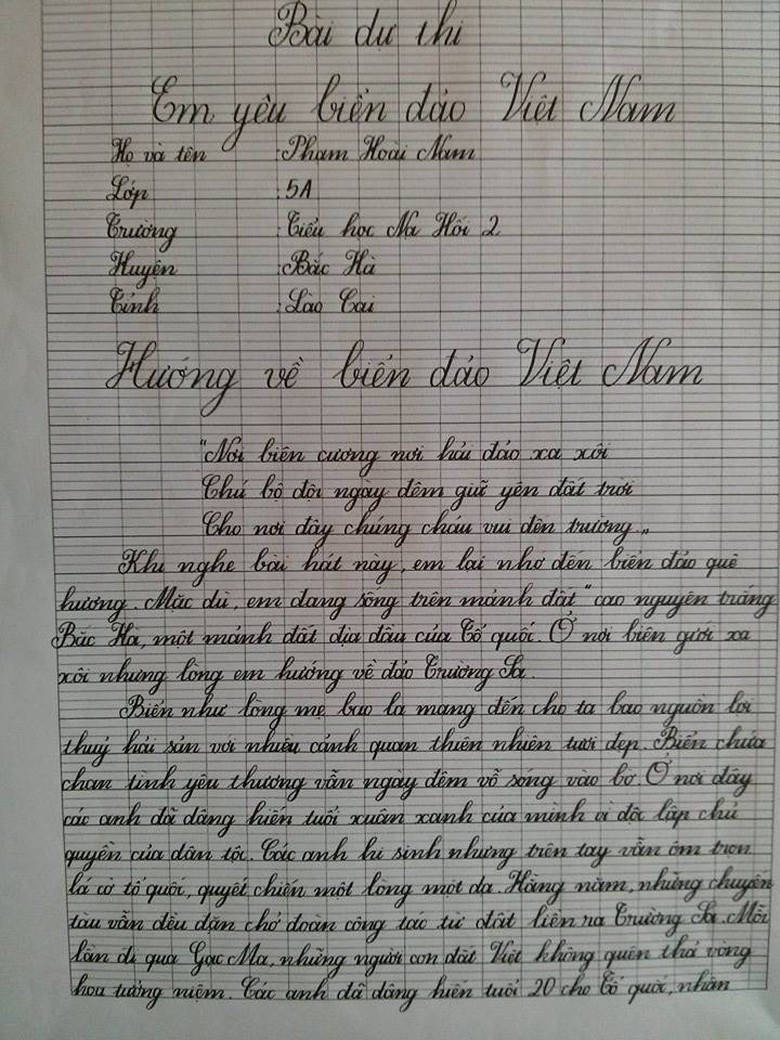 Bài dự thi
Em yêu biển đảo Việt Nam
Họ và tên : Phạm Hoài Nam
Lớp : 5A
Trường : Tiểu học Na Hối 2
Huyện : Bắc Hà
Tỉnh : Lào Cai
Hướng về biển đảo Việt Nam
"Nơi biên cương nơi hải đảo xa xôi
Chú bộ đội ngày đêm giữ yên đất trời
Cho nơi đây chúng cháu vui đến trường„
Khi nghe bài hát này, em lại nhớ đến biển đảo quê
hương. Mặc dù, em đang sống trên mảnh đất "cao nguyên trắng
Bắc Hà, một mảnh đất địa đầu của Tổ quốc. Ở nơi biên giới xa
xôi nhưng lòng em hướng về đảo Trường Sa.
Biển như lòng mẹ bao la mang đến cho ta bao nguồn lợi
thuỷ hải sản với nhiều cảnh quan thiên nhiên tươi đẹp. Biển chứa
chan tình yêu thương vẫn ngày đêm vỗ sóng vào bờ. Ở nơi đây
các anh đã dâng hiến tuổi xuân xanh của mình vì độc lập chủ
quyền của dân tộc. Các anh hi sinh nhưng trên tay vẫn ôm trọn
lá cờ tổ quốc, quyết chiến một lòng một dạ. Hằng năm, những chuyến
tàu vẫn đều đặn chở đoàn công tác từ đất liền ra Trường Sa. Mỗi
lần đi qua Gạc Ma, những người con đất Việt không quên thả vòng
hoa tưởng niệm. Các anh đã dâng hiến tuổi 20 cho Tổ quốc, nhân